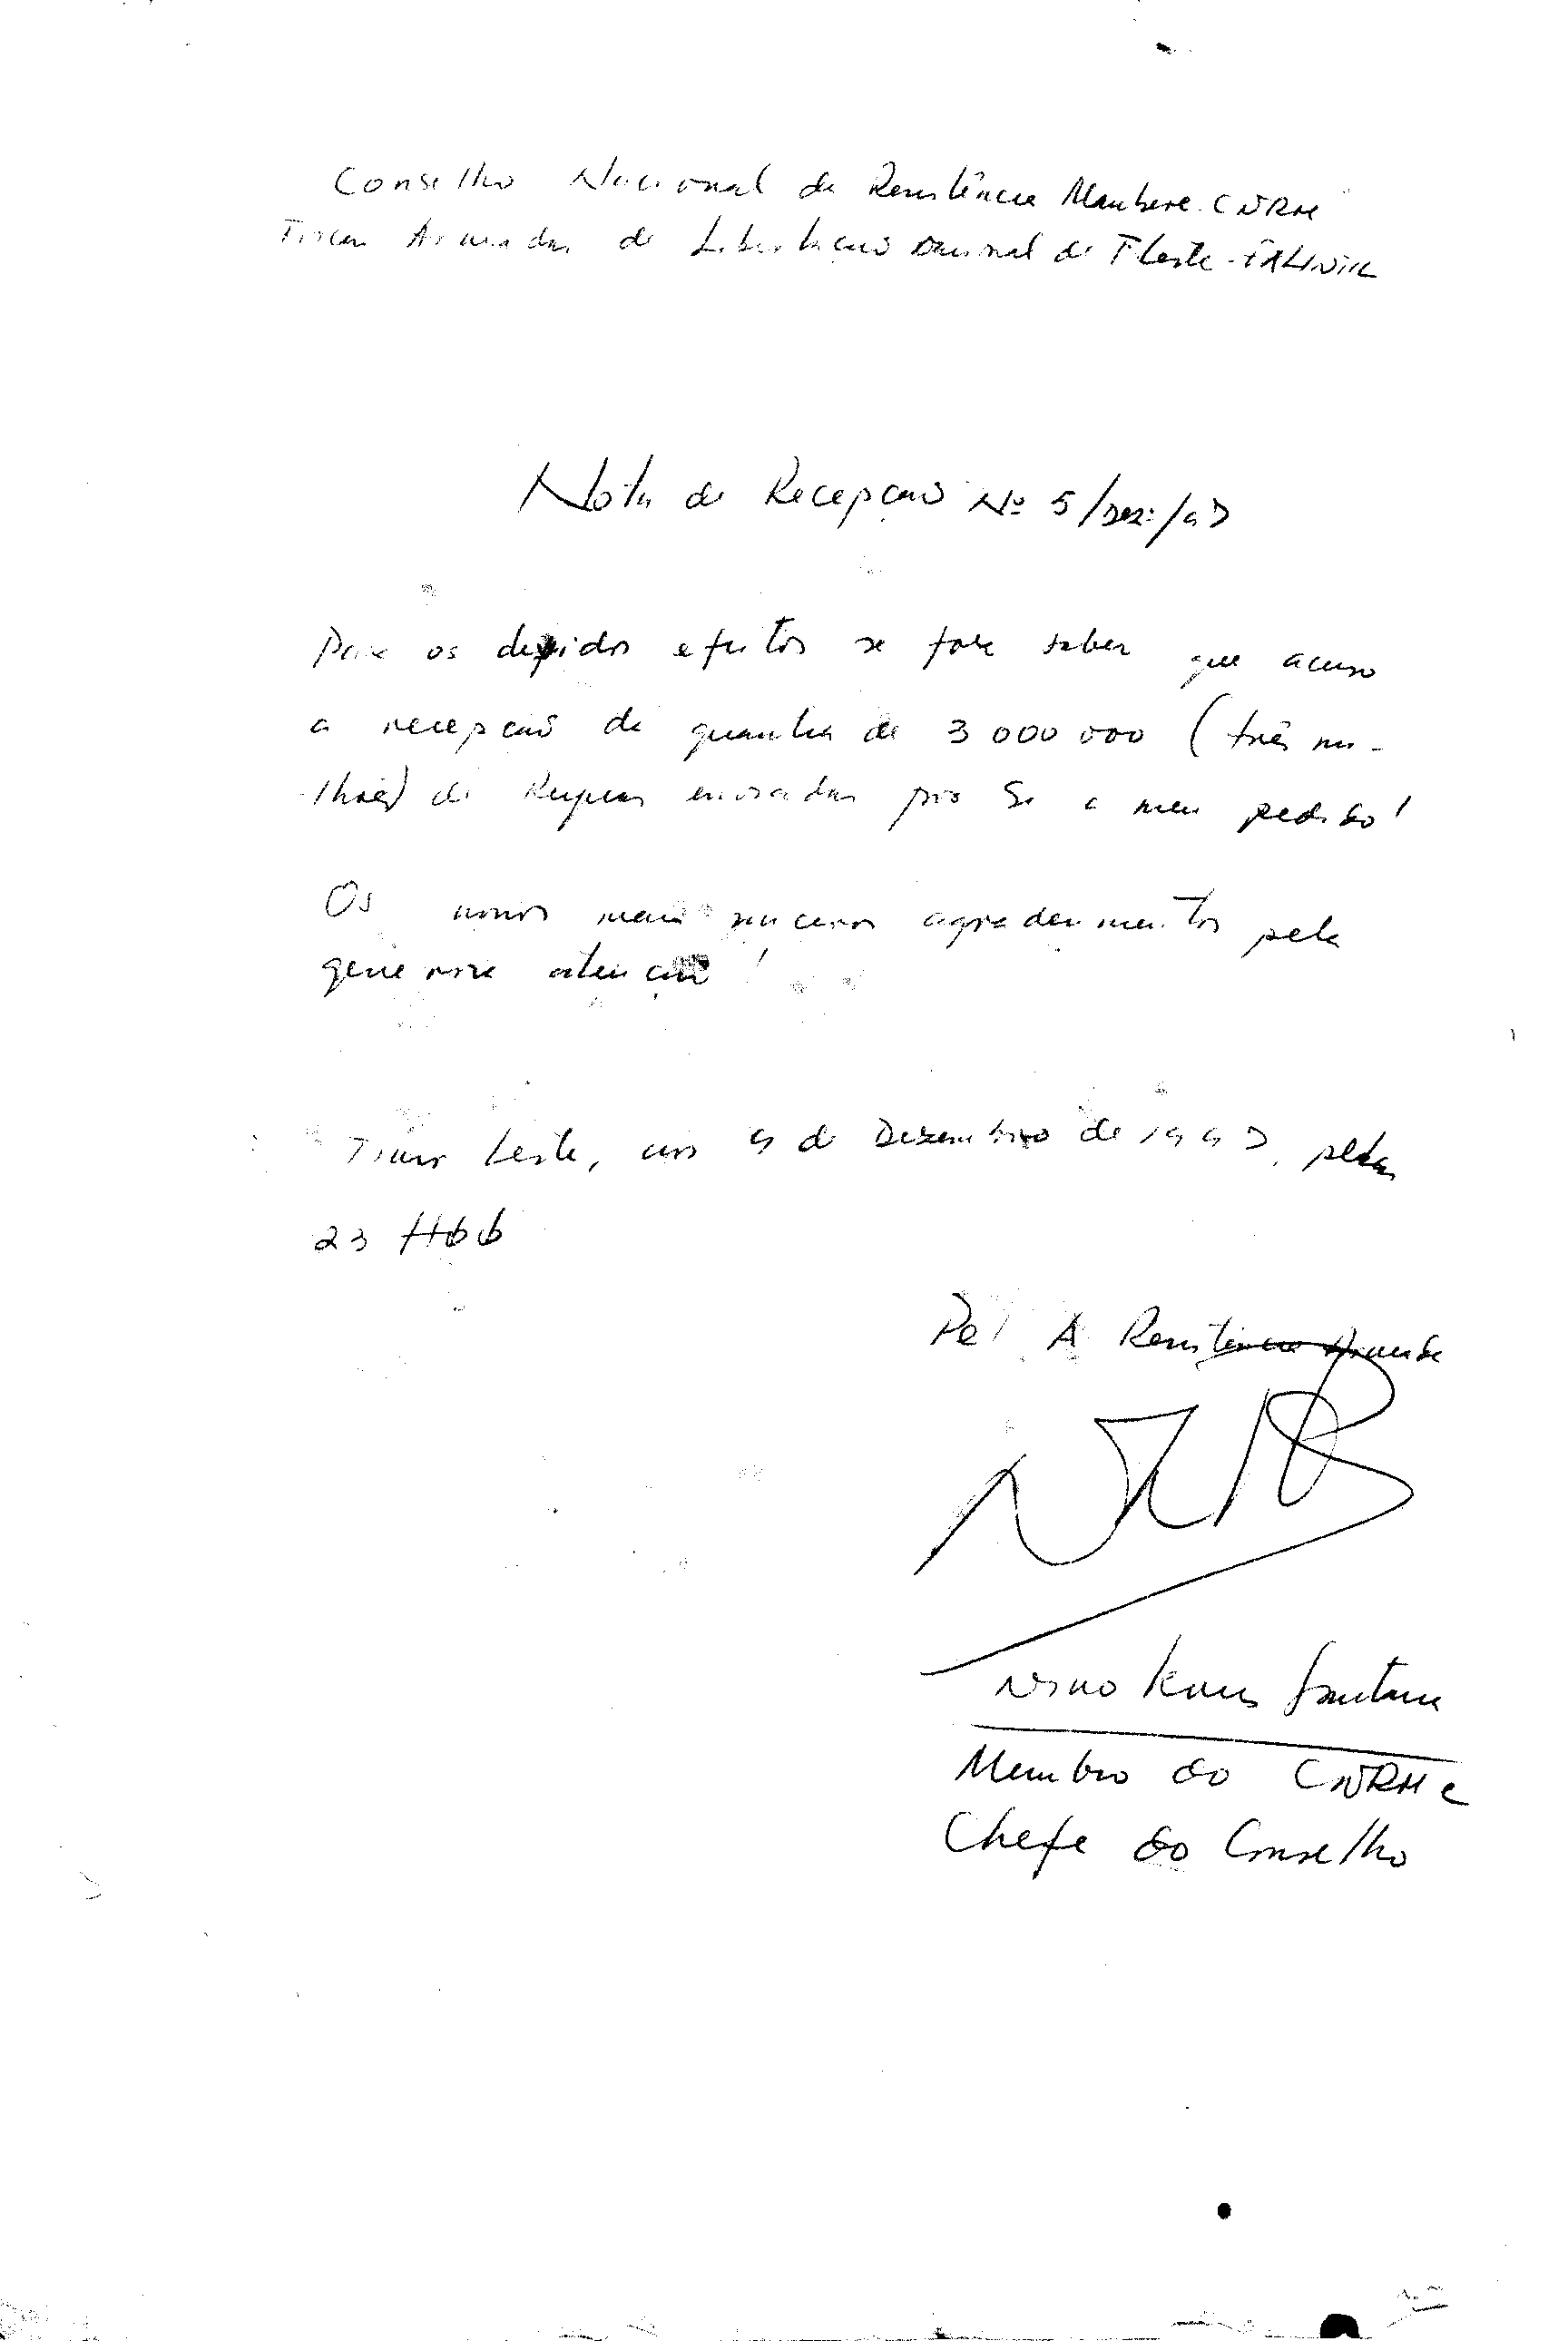 Conselho Nacional da Resistência Maubere - CNRM
Forças Armadas de Libertação Nacional de T. Leste - FALINTIL
Nota de Recepção Nº 5/Dez:/97
Para os devidos efeitos se faze saber que acuso
a recepção da quantia de 3 000 000 (três mi-
lhões) de Rupias enviadas por Si a meu pedido!
Os nossos mais sinceros agradecimentos pela
generosa atenção!
Timor Leste, aos 9 de Dezembro de 1997, pelas
23 H00
Pel' A Resistência Armada
Nino Konis Santana
Membro do CNRM e
Chefe do Conselho